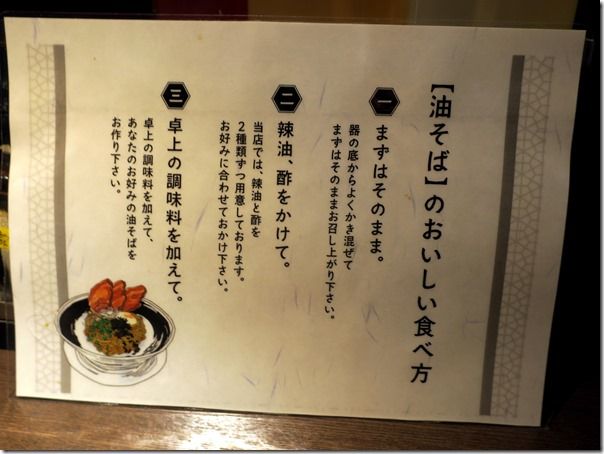 【油そば】のおいしい食べ方
一
まずはそのまま。
器の底からよくかき混ぜて
まずはそのままお召し上がり下さい。
二
辣油、酢をかけて。
当店では、辣油と酢を
2種類ずつ用意しております。
お好みに合わせておかけ下さい。
三
卓上の調味料を加えて。
卓上の調味料を加えて、
あなたのお好みの油そばを
お作り下さい。